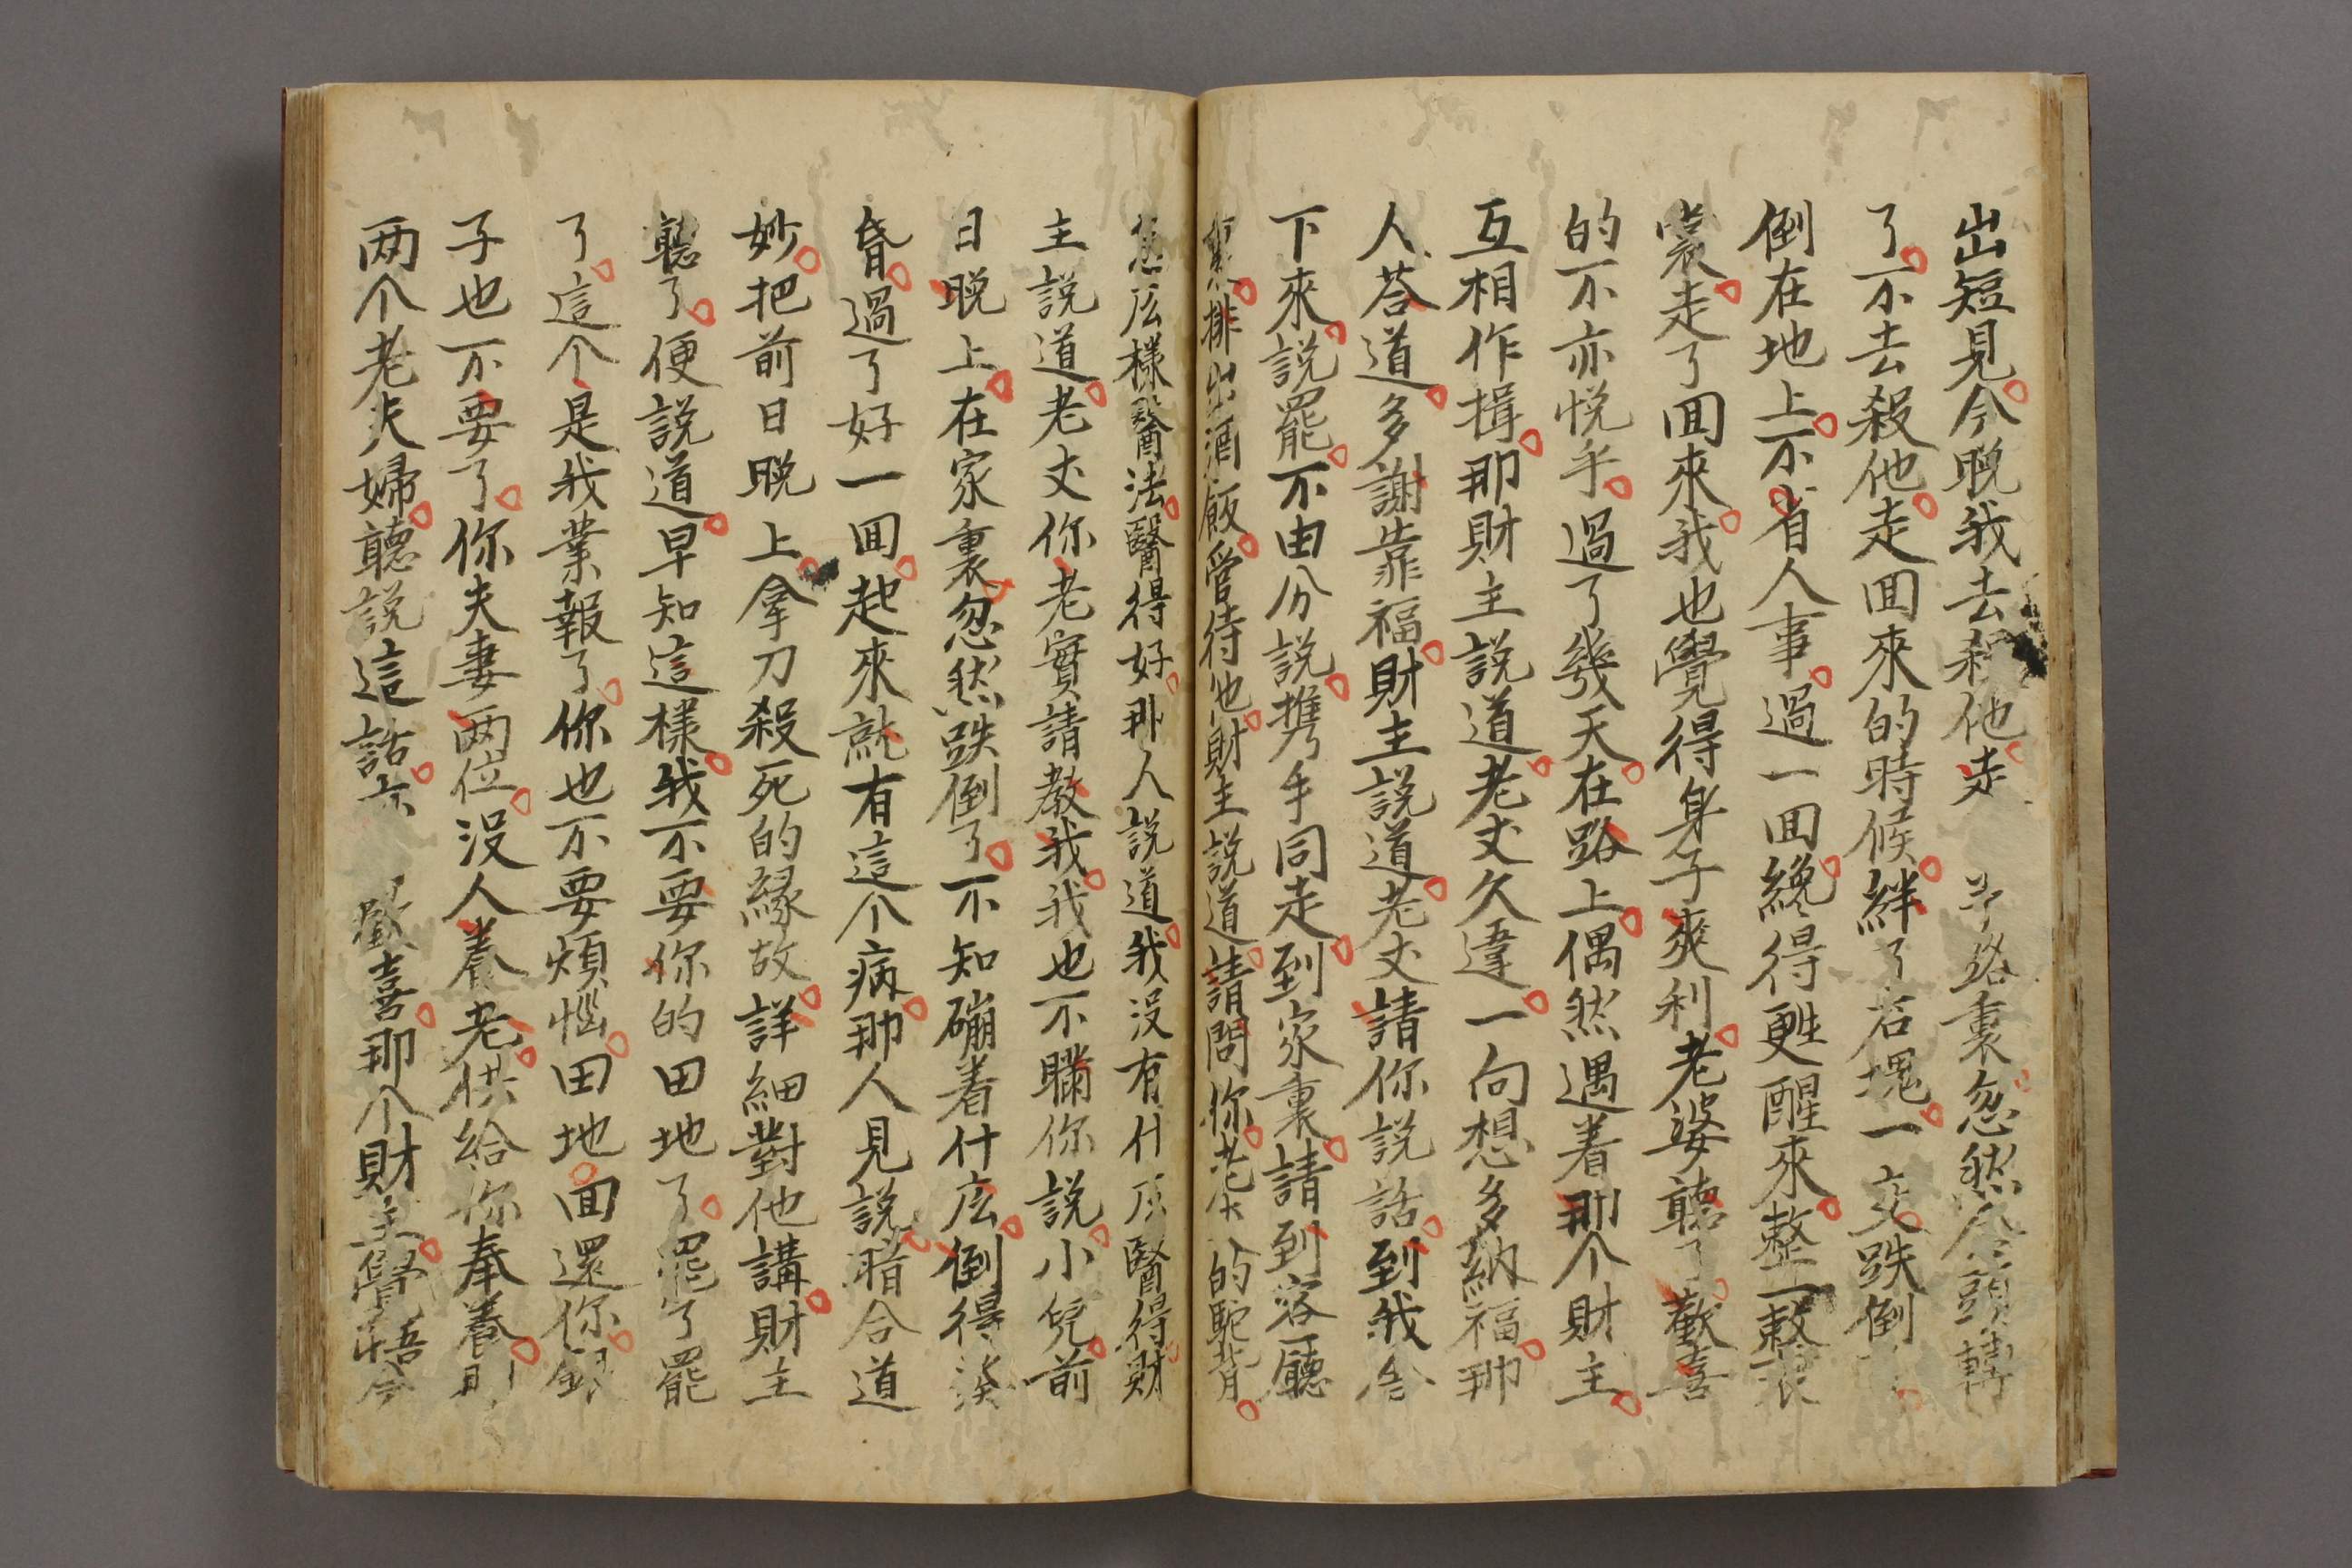 出短見今晚我去殺他走 路裏忽然念頭轉
了不去殺他走囬來的時候絆了石塊一交跌倒
倒在地上不省人事過一囬纔得甦醒來整一整衣
裳走了囬來我也覺得身子爽利老婆聽了歡喜
的不亦悅乎過了幾天在路上偶然遇着那个財主
互相作揖那財主說道老丈久違一向想多納福那
人荅道多謝靠福財主說道老丈請你說話到我舍
下來說罷不由分說携手同走到家裏請到客廳
裏排出酒飯管待他財主說道請問你老人的駝背
怎庅樣醫法醫得好那人說道我沒有什庅醫得財
主說道老丈你老實請教我我也不瞞你說小兒前
日晚上在家裏忽然跌倒了不知磞着什庅倒得發
昏過了好一囬起來就有這个病那人見說暗合道
妙把前日晚上拿刀殺死的緣故詳細對他講財主
聽了便說道早知這樣我不要你的田地了罷了罷
了這个是我業報了你也不要煩惱田地囬還你銀
子也不要了你夫妻两位沒人養老供給你奉養則
两个老夫婦聽說這話亦 歡喜那个財主覺悟今